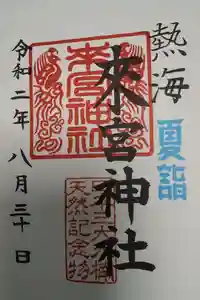 熱海
夏詣
來宮神社
来宮神社
天然記念物
令和二年八月三十日